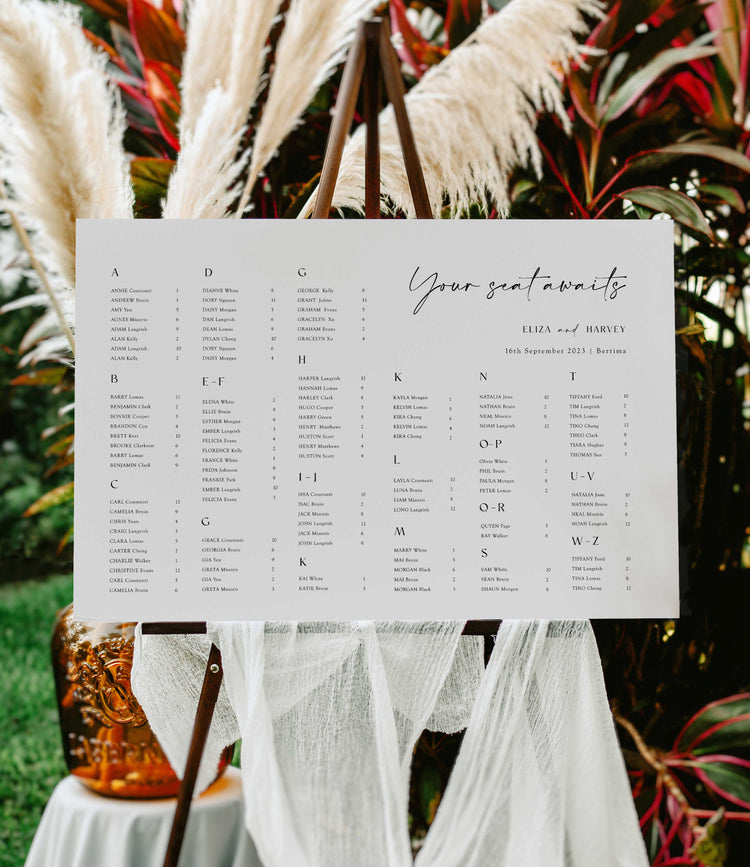 Your seat awaits
ELIZA and HARVEY
16th September 2023 | Berrima
A
ANNIE Constanti 1
ANDREW Bruin 1
AMY Yen 5
AGNES Missiris 6
ADAM Langrish 8
ALAN Kelly 2
ADAM Langrish 10
ALAN Kelly 2
B
BARRY Lomas 11
BENJAMIN Clark 2
BONNIE Cooper 3
BRANDON Cox 4
BRETT Kerr 10
BROOKE Clarkson 6
BARRY Lomas 6
BENJAMIN Clark 9
C
CARL Constanti 12
CAMELIA Bruin 9
CHRIS Yuan 4
CRAIG Langrish 3
CLARA Lomas 5
CARTER Cheng 2
CHARLIE Walker 1
CHRISTINE Evans 12
CARL Constanti 5
CAMELIA Bruin 6
D
DIANNE White 9
DORY Nguyen 11
DAISY Morgan 5
DAN Langrish 6
DEAN Lomas 9
DYLAN Cheng 10
DORY Nguyen 6
DAISY Morgan 4
E-F
ELENA White 2
ELLIE Bruin 9
ESTHER Morgan 4
EMBER Langrish 3
FELICIA Evans 4
FLORENCE Kelly 2
FRANCE White 1
FRIDA Johnson 8
FRANKIE Park 9
EMBER Langrish 10
FELICIA Evans 3
G
GRACE Constanti 10
GEORGIA Bruin 6
GIA Yen 9
GRETA Missiris 2
GIA Yen 2
GRETA Missiris 3
G
GEORGE Kelly 9
GRANT Johns 11
GRAHAM Evans 5
GRACELYN Xu 6
GRAHAM Evans 2
GRACELYN Xu 4
H
HARPER Langrish 12
HANNAH Lomas 9
HARLEY Clark 4
HUGO Cooper 3
HARRY Green 5
HENRY Matthews 2
HUSTON Scott 1
HENRY Matthews 4
HUSTON Scott 4
I-J
ISSA Constanti 10
ISAC Bruin 2
JACK Missiris 8
JOHN Langrish 12
JACK Missiris 6
JOHN Langrish 9
K
KAI White 1
KATIE Bruin 5
K
KAYLA Morgan 1
KELVIN Lomas 5
KIRA Cheng 6
KELVIN Lomas 4
KIRA Cheng 2
L
LAYLA Constanti 10
LUNA Bruin 2
LIAM Missiris 9
LONG Langrish 12
M
MARRY White 1
MAI Bruin 5
MORGAN Black 6
MAI Bruin 2
MORGAN Black 4
N
NATALIA June 10
NATHAN Bruin 2
NEAL Missiris 8
NOAH Langrish 12
O-P
Olivia White 5
PHIL Bruin 2
PAULA Morgan 8
PETER Lomas 2
O-R
QUYEN Page 5
RAY Walker 8
S
SAM White 10
SEAN Bruin 2
SHAUN Morgan 8
T
TIFFANY Food 10
TIM Langrish 2
TINA Lomas 8
TINO Cheng 12
THEO Clark 8
TIARA Hughes 9
THOMAS Sue 3
U-V
NATALIA June 10
NATHAN Bruin 2
NEAL Missiris 8
NOAH Langrish 12
W-Z
TIFFANY Food 10
TIM Langrish 2
TINA Lomas 8
TINO Cheng 12